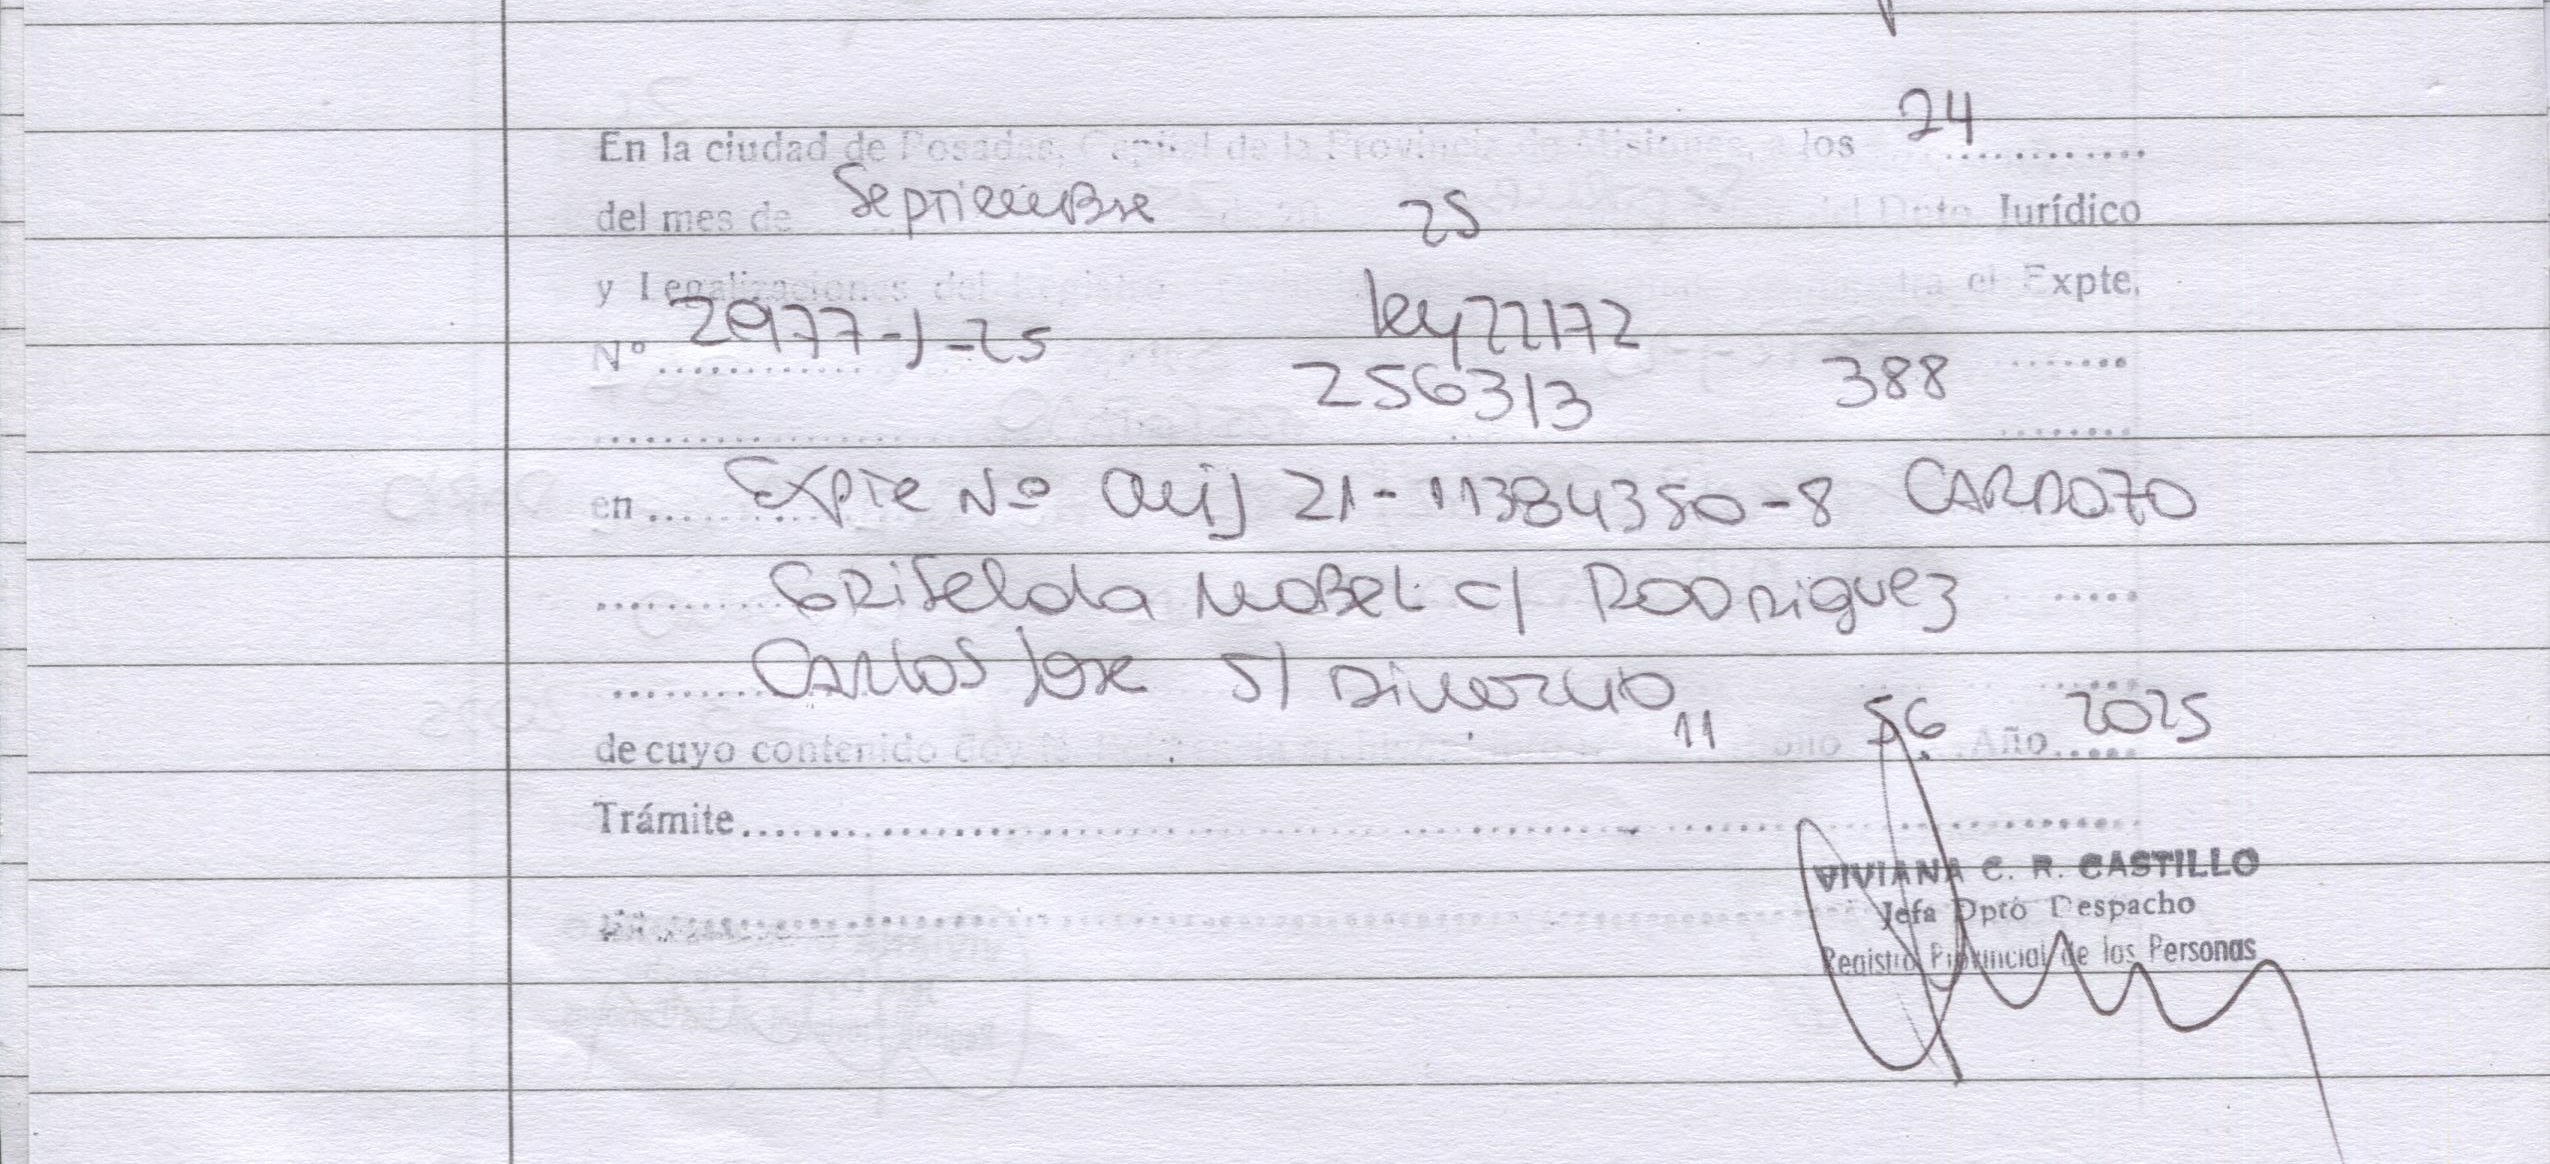 En la ciudad de Posadas, Capital de la Provincia de Misiones, a los 24
del mes de Septiembre 25 del Dpto. Jurídico
y Legalizaciones del Expte.
Nº 2977-J-25 ley 22172
256313 388
en Expte Nº Cuij 21-11384350-8 CARDOZO
Griselda Mabel c/ Rodriguez
Carlos Jose s/ Divorcio
de cuyo contenido doy fe 11 56 Año 2025
Trámite
VIVIANA C. R. CASTILLO
Jefa Dpto Despacho
Registro Provincial de las Personas